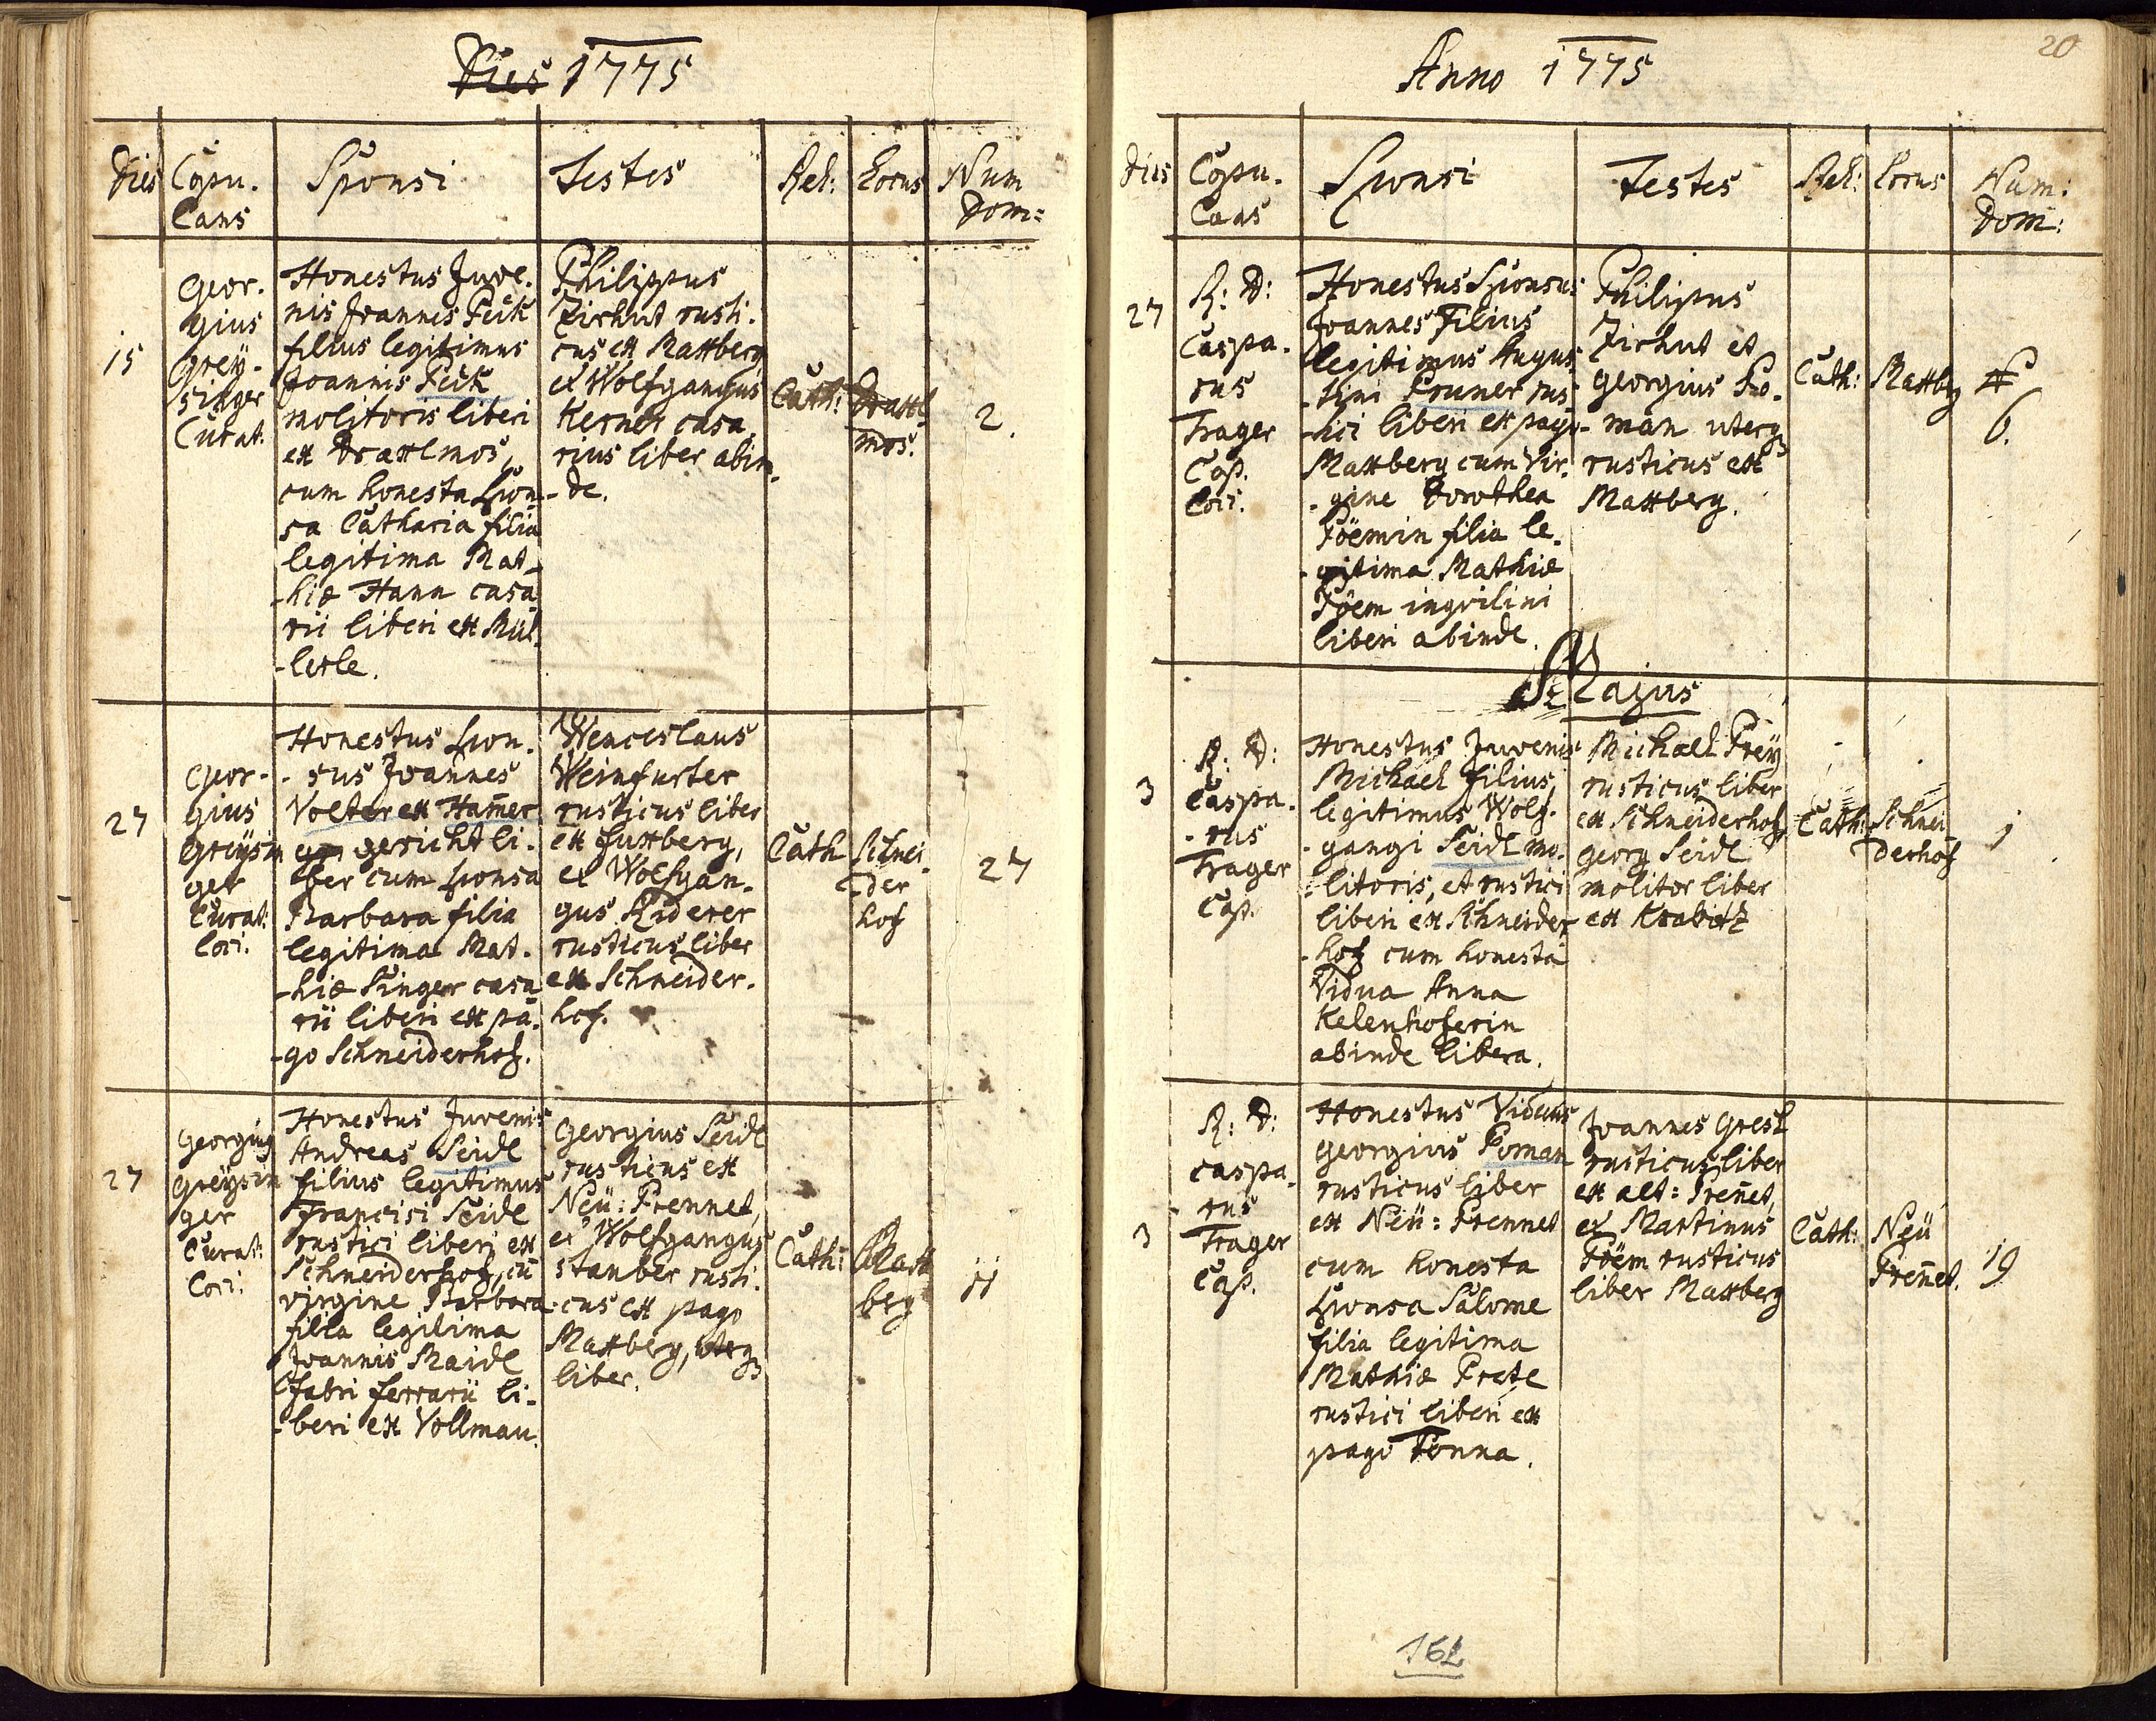 Dies 1775
Dies
Copu.
lans
Sponsi
Testes
Rel:
Locus
Num
Dom:
15
Geor.
gius
Greÿ.
singer
Curat.
Honestus Juve.
nis Joannes Peck
filius legitimus
Joannis Peck
molitoris liberi
ex Draxlmos,
cum honesta spon-
sa Catharia filia
legitima Mat-
-hiæ Hann casa
rii liberi ex Mül.
-lerle.
Philippus
Zirhut rusti.
cus ex Maxberg
et Wolfgangus
Kerner casa.
rius liber abin-
-de.
Cath:
Draxl
mos.
2.
27
Geor-
gius
Greÿsin
ger
Curat:
loci.
Honestus spon.
- sus Joannes
Volter ex Ham̃er
gericht li.
ber cum sponsa
Barbara filia
legitima Mat.
-hiæ Singer casa
rii liberi ex pa.
-go Schneiderhof.
Wenceslaus
Weinfurter
rusticus liber
ex Fuxberg,
et Wolfgan.
gus Riderer
rusticus liber
ex Schneider.
hof.
Cath
Schnei
der
hof
27
27
Georgius
Greÿsin
ger
Curat:
loci.
Honestus Juvenis
Andreas Seidl
filius legitimus
Francisci Seidl
rustici liberi ex
Schneiderhof, cū
virgine Barbara
filia legitima
Joannis Maidl
fabri ferrarii li-
-beri ex Vollmau.
Georgius Seidl
rusticus ex
Neü: Prennet,
et Wolfgangus
Stauber rusti.
cus ex pago
Maxberg, uterqꝫ
liber.
Cath:
Max
berg
11
Anno 1775
20
Dies
Copu.
lans
Sponsi
Testes
Rel:
Locus
Num:
Dom:
27
R: D:
Caspa.
rus
Trager
Cap.
loci.
Honestus Sponsus
Joannes Filius
legitimus Augus
-tini Pruner rus
-tici liberi ex pago
Maxberg cum Vir.
- gine Dorothea
Pöemin filia le.
- gitima Mathiæ
Pöem inqvilini
liberi abinde.
Philipus
Zirhut et
Georgius Po.
- man uterqꝫ
rusticus ex
Maxberg.
Cath:
Maxbeg
6.
Majus
3
R: D:
Caspa.
- rus
Trager
Cap.
Honestus Juvenis
Michael filius
legitimus Wolf.
- gangi Seidl mo.
litoris, et rustici
liberi ex Schneider
-hof cum honesta
Vidua Anna
Kelenhoferin
abinde libera.
Michael Preÿ
rusticus liber
ex Schneiderhof,
Georg Seidl
molitor liber
ex Krabitz
Cath:
Schnei
derhof
1
3
R: D:
caspa.
- rus
Trager
Cap.
Honestus Viduus
Georgius Poman
rusticus liber
ex Neü: Prennet
cum honesta
Sponsa Salome
filia legitima
Mathiæ Pretl
rustici liberi ex
pago Ponna.
Joannes Gresl
rusticus liber
ex alt: Preñet,
et Martinus
Pöem rusticus
liber Maxberg
Cath:
Neü
Preñet.
19
162